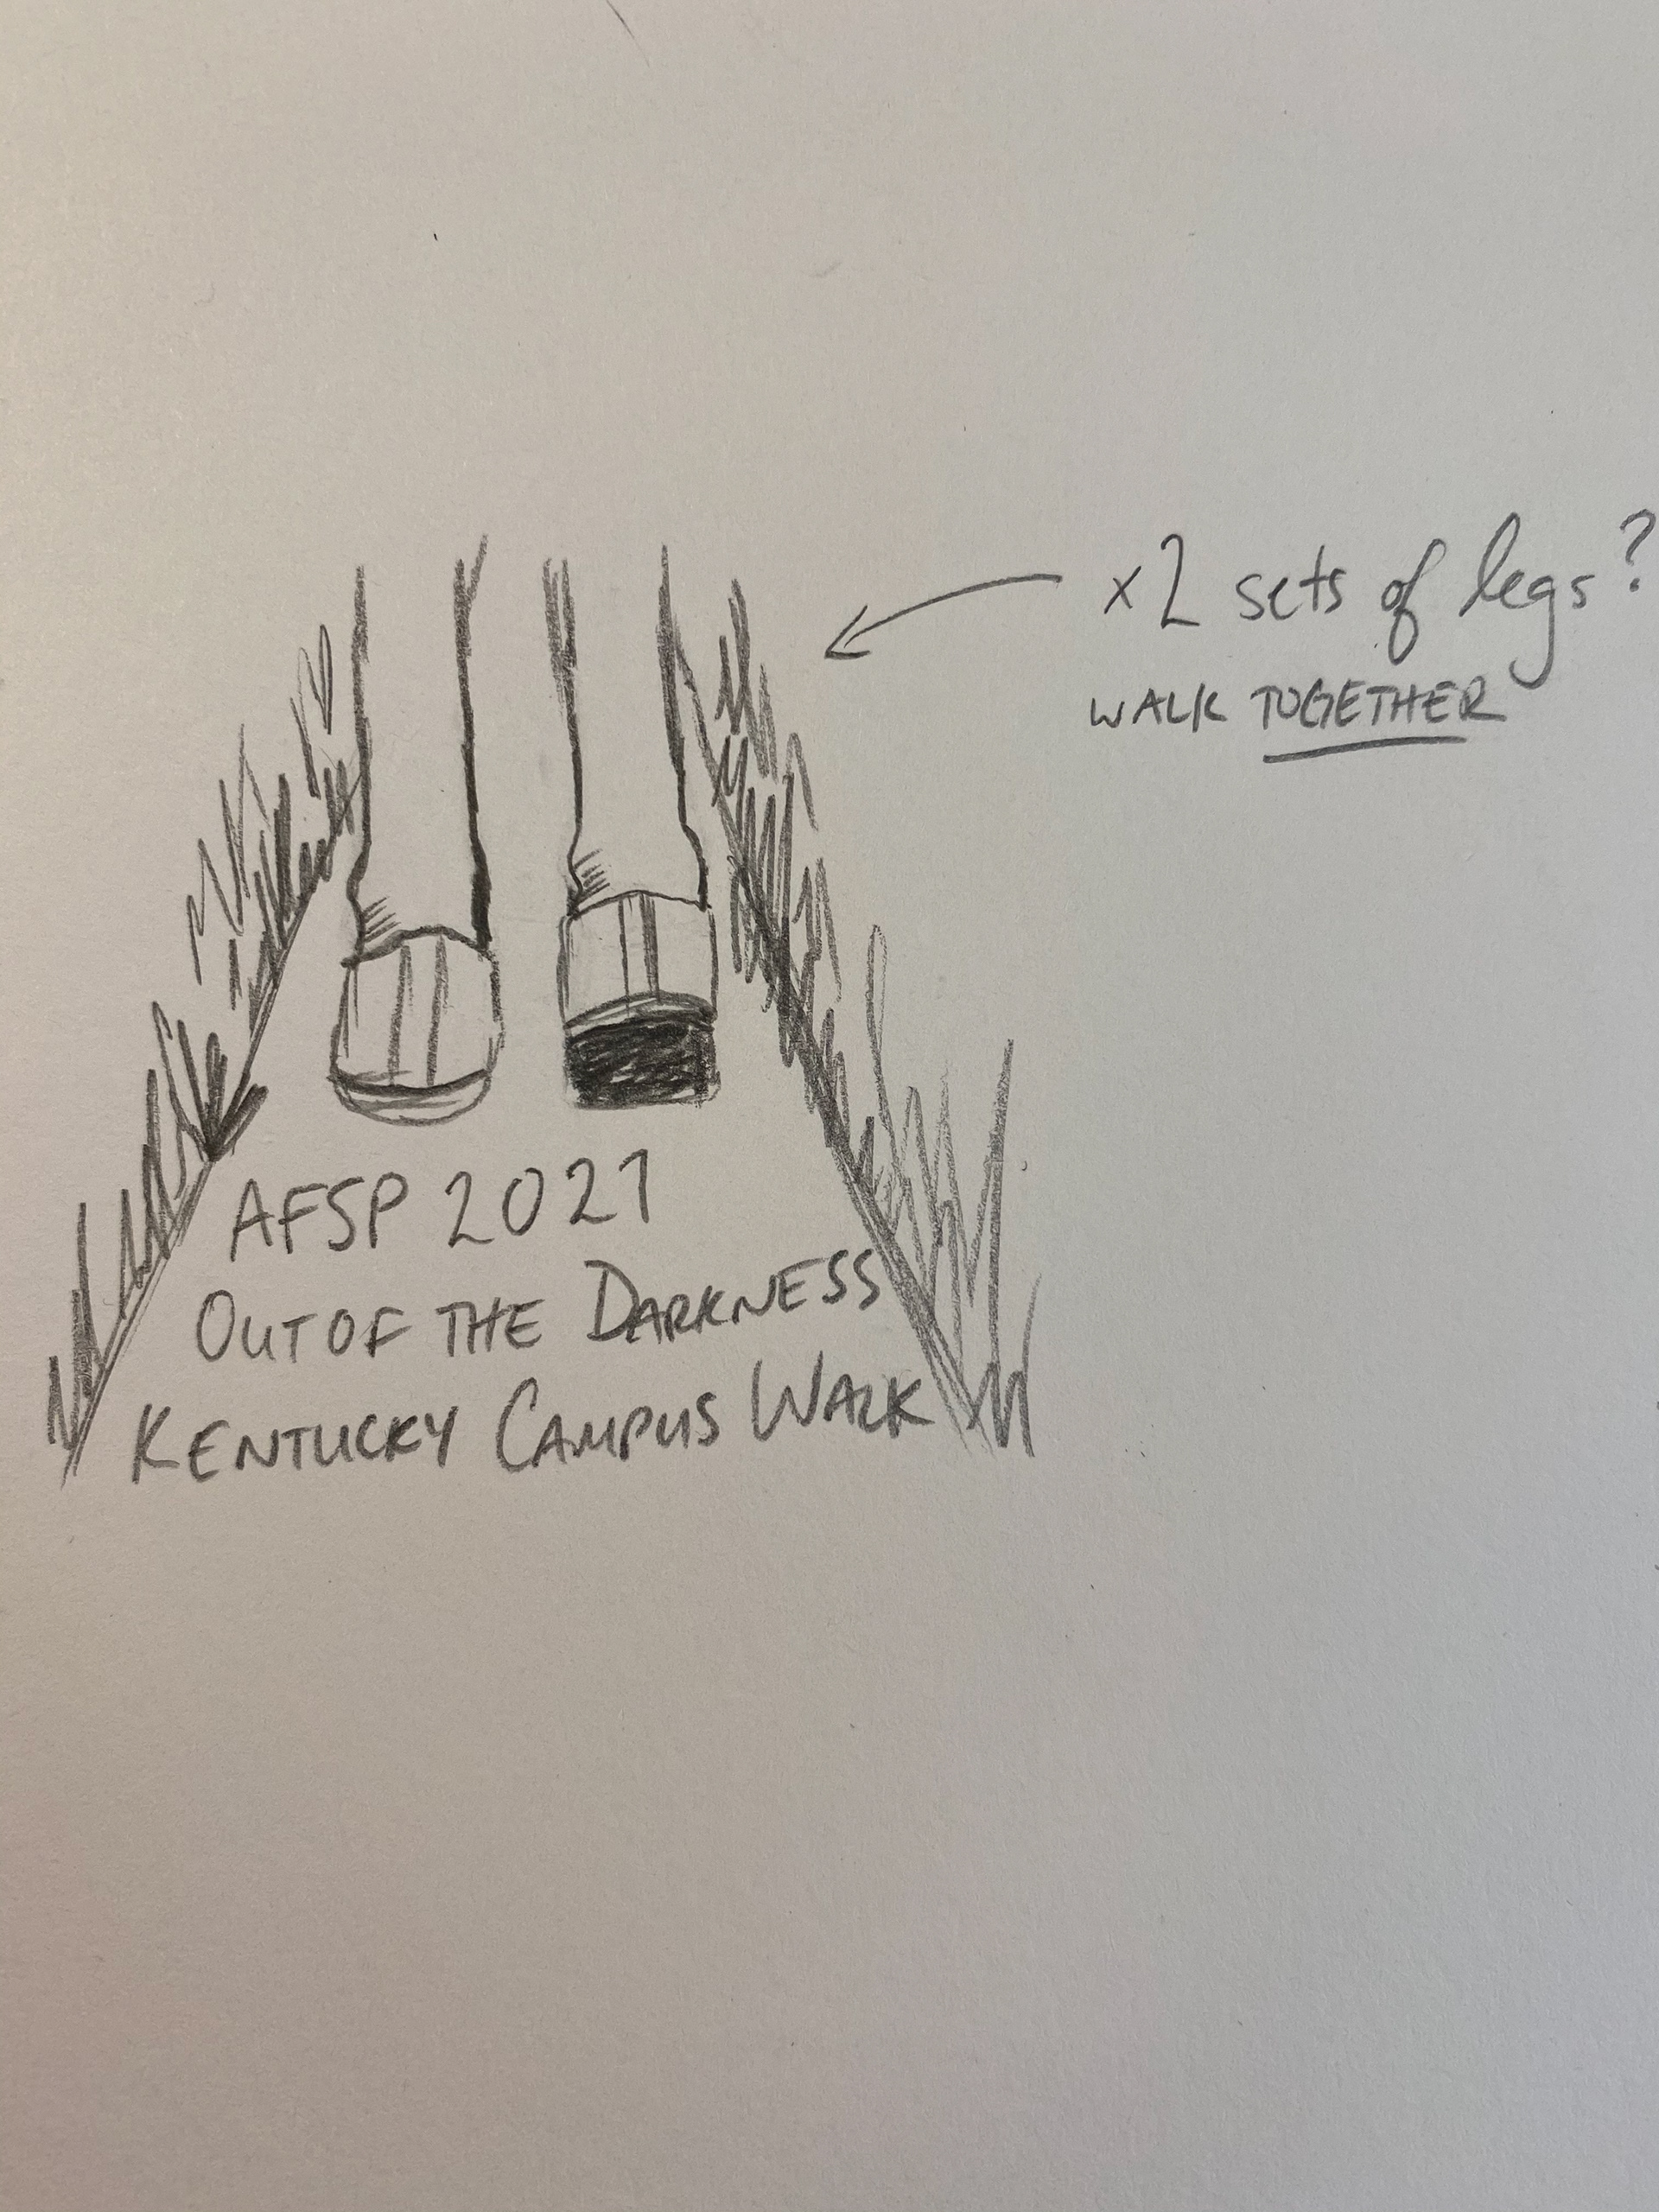 x2 sets of legs?
WALK TOGETHER
AFSP 2021
OUT OF THE DARKNESS
KENTUCKY CAMPUS WALK